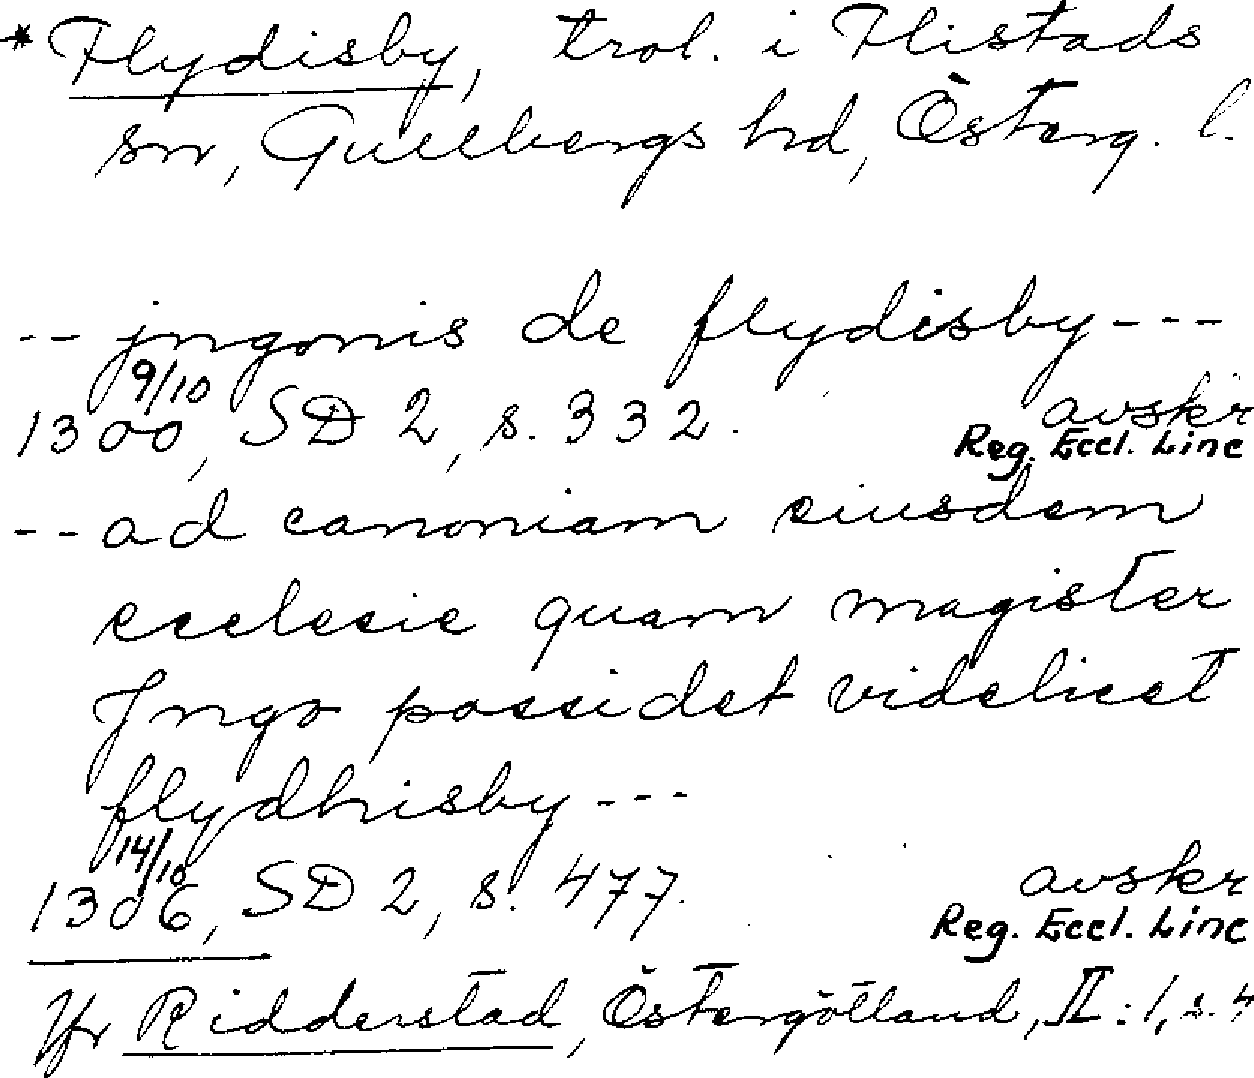 * Flydisby, trol. i Flistads
sn, Gullbergs hd, Österg. l.
-- jngonis de flydisby ---
9/10
1300, SD 2, s. 332. avskr
Reg. Eccl. Linc
-- ad canoniam eiusdem
ecclesie quam magister
Jngo possidet videlicet
flydhisby ---
14/10
1306, SD 2, s. 477. avskr
Reg. Eccl. Linc
Jfr Ridderstad, Östergötland, II:1, s. 4